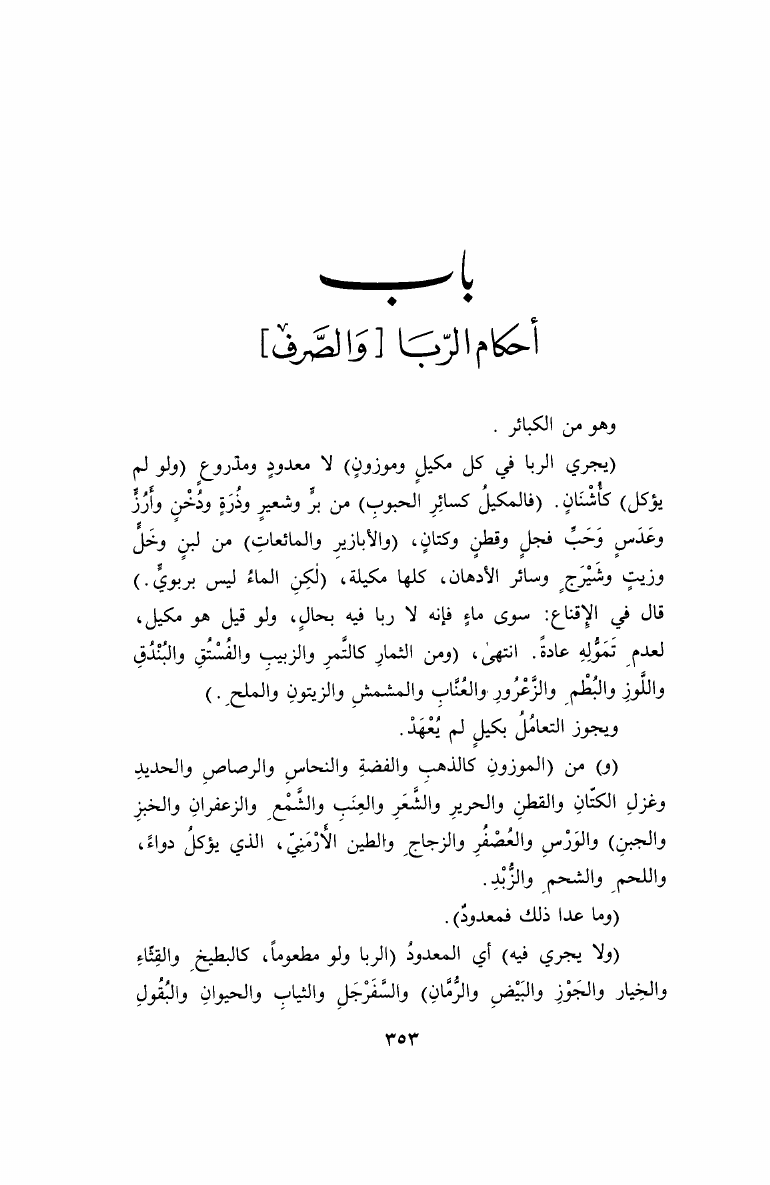 باب
أحكام الرّبَا [وَالصَّرفْ]
وهو من الكبائر .
(يجري الربا في كل مكيلٍ وموزونٍ) لا معدودٍ ومذروعٍ (ولو لم
يؤكل) كأُشْنَانٍ. (فالمكيلُ كسائِرِ الحبوبِ) من برٍّ وشعيرٍ وذُرَةٍ ودُخْنٍ وأَرُزٍّ
وعَدَسٍ وَحَبِّ فجلٍ وقطنٍ وكتانٍ، (والأبازيرِ والمائعاتِ) من لبنٍ وخَلٍّ
وزيتٍ وشَيْرَجٍ وسائر الأدهان، كلها مكيلة، (لٰكِنِ الماءُ ليس بربويٍّ.)
قال في الإِقناع: سوى ماءٍ فإنه لا ربا فيه بحالٍ، ولو قيل هو مكيل،
لعدمِ تَمَوُّلِهِ عادةً. انتهىٰ، (ومن الثمارِ كالتَّمرِ والزبيبِ والفُسْتُقِ والبُنْدُقِ
واللَّوزِ والبُطْمِ والزَّعْرُورِ والعُنَّابِ والمشمشِ والزيتونِ والملحِ.)
ويجوز التعامُلُ بكيلٍ لم يُعْهَدْ.
(و) من (الموزونِ كالذهبِ والفضةِ والنحاسِ والرصاصِ والحديدِ
وغزلِ الكتّانِ والقطنِ والحريرِ والشَّعَرِ والعِنَبِ والشَّمْعِ والزعفرانِ والخبزِ
والجبنِ) والوَرْسِ والعُصْفُرِ والزجاجِ والطين الأَرْمَنِيّ، الذي يؤكلُ دواءً،
واللحمِ والشحمِ والزُّبْدِ.
(وما عدا ذلك فمعدودٌ).
(ولا يجري فيه) أي المعدودُ (الربا ولو مطعوماً، كالبطيخِ والقِثّاءِ
والخِيار والجَوْزِ والبَيْضِ والرُّمَّانِ) والسَّفَرْجَلِ والثيابِ والحيوانِ والبُقُولِ
٣٥٣